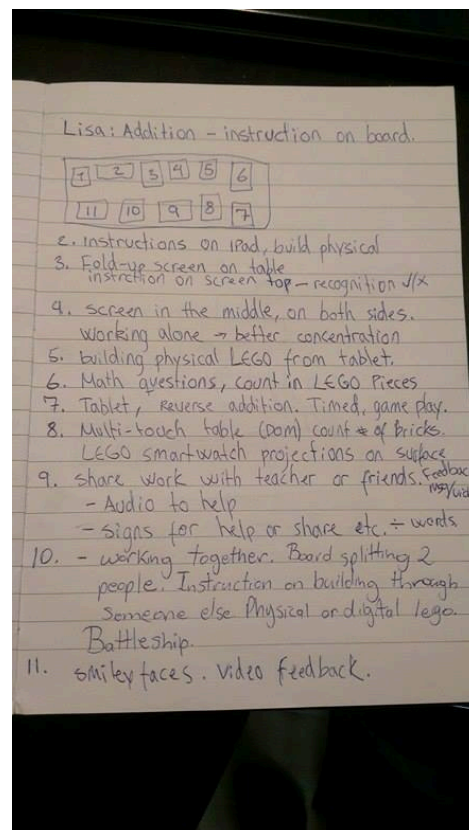 Lisa: Addition - instruction on board.
1 2 3 4 5 6
11 10 9 8 7
2. Instructions on iPad, build physical
3. Fold-up screen on table
instrction on screen top - recognition √/x
4. screen in the middle, on both sides.
Working alone → better concentration
5. building physical LEGO from tablet.
6. Math questions, count in LEGO Pieces
7. Tablet, Reverse addition. Timed, game play.
8. Multi-touch table (DOM) count # of bricks.
LEGO smartwatch projections on surface
9. share work with teacher or friends. Feedbac
msg/vid
- Audio to help
- signs for help or share etc. ÷ words
10. - working together. Board splitting 2
people. Instruction on building through
someone else Physical or digital lego.
Battleship.
11. smiley faces. video feedback.